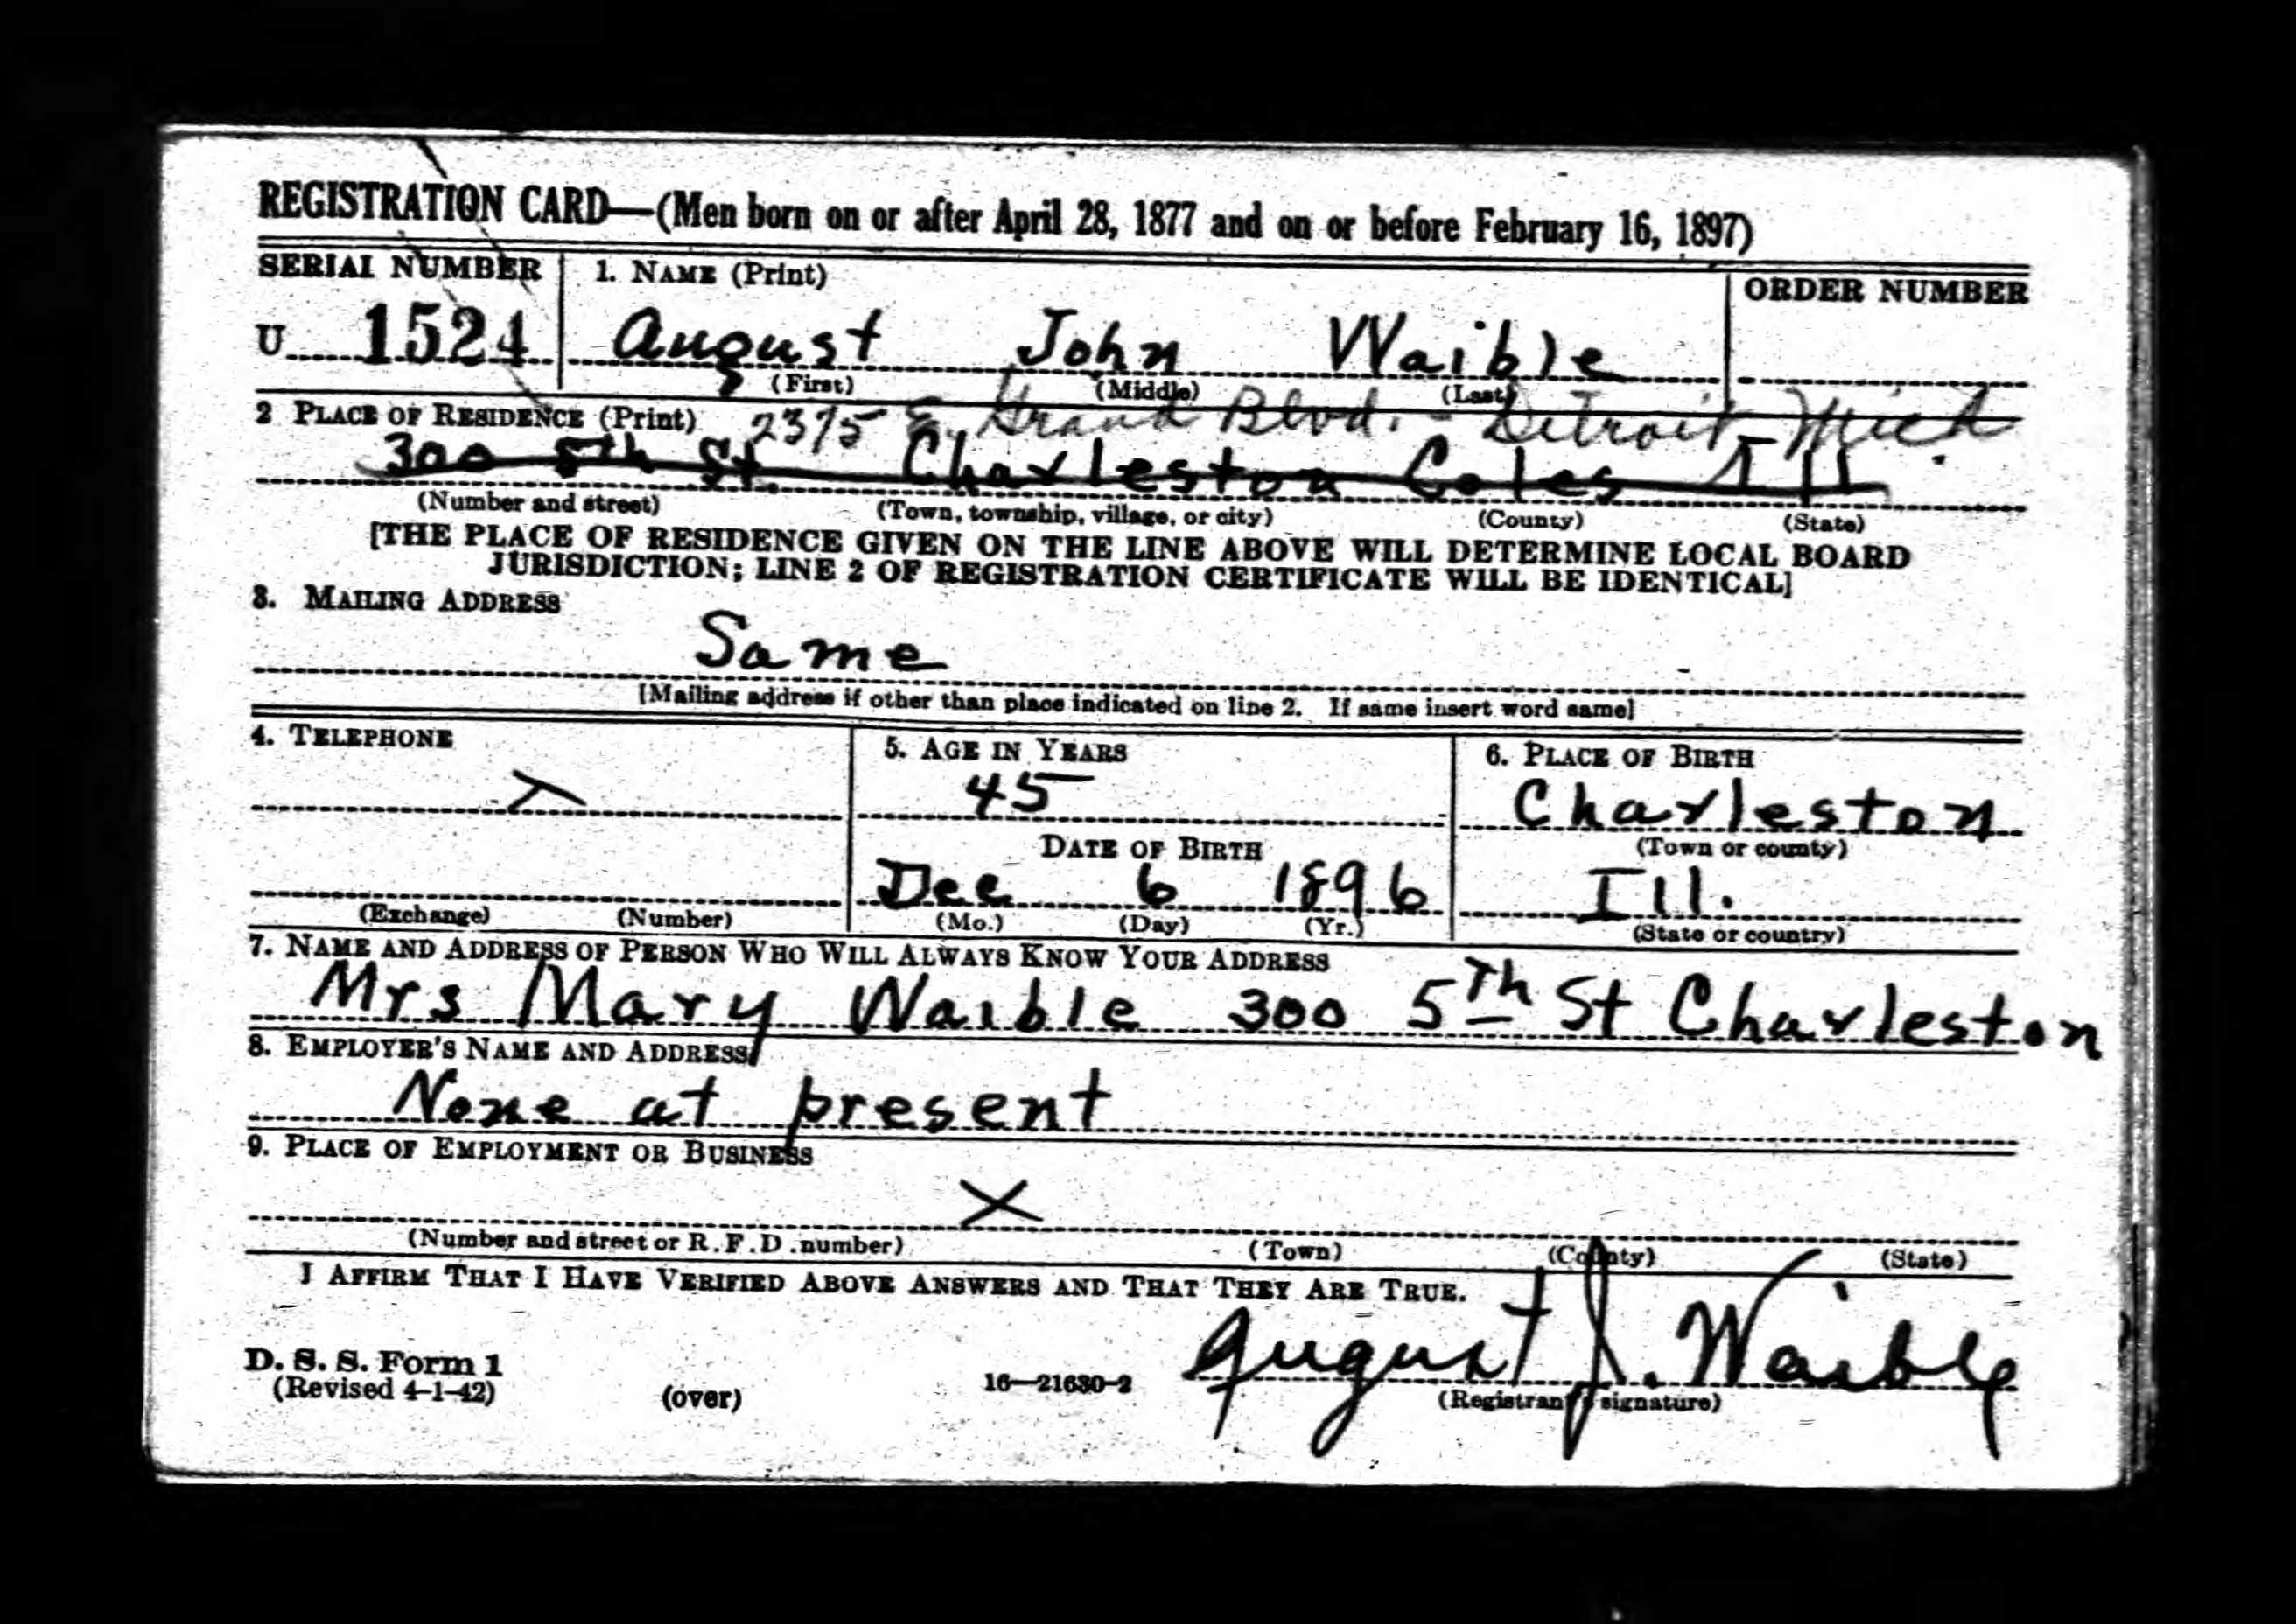 REGISTRATION CARD—(Men born on or after April 28, 1877 and on or before February 16, 1897)
SERIAL NUMBER 1. NAME (Print) ORDER NUMBER
U 1524 August John Waible
(First) (Middle) (Last)
2 PLACE OF RESIDENCE (Print) 2375 E. Grand Blvd. - Detroit Mich
300 5th St. Charleston Coles Ill
(Number and street) (Town, township, village, or city) (County) (State)
[THE PLACE OF RESIDENCE GIVEN ON THE LINE ABOVE WILL DETERMINE LOCAL BOARD
JURISDICTION; LINE 2 OF REGISTRATION CERTIFICATE WILL BE IDENTICAL]
3. MAILING ADDRESS
Same
[Mailing address if other than place indicated on line 2. If same insert word same]
4. TELEPHONE 5. AGE IN YEARS 6. PLACE OF BIRTH
X 45 Charleston
DATE OF BIRTH (Town or county)
Dec 6 1896 Ill.
(Exchange) (Number) (Mo.) (Day) (Yr.) (State or country)
7. NAME AND ADDRESS OF PERSON WHO WILL ALWAYS KNOW YOUR ADDRESS
Mrs Mary Waible 300 5th St Charleston
8. EMPLOYER'S NAME AND ADDRESS
None at present
9. PLACE OF EMPLOYMENT OR BUSINESS
X
(Number and street or R.F.D. number) (Town) (County) (State)
I AFFIRM THAT I HAVE VERIFIED ABOVE ANSWERS AND THAT THEY ARE TRUE.
August J. Waible
D. S. S. Form 1
(Revised 4-1-42) (over) 16—21630-2 (Registrant's signature)